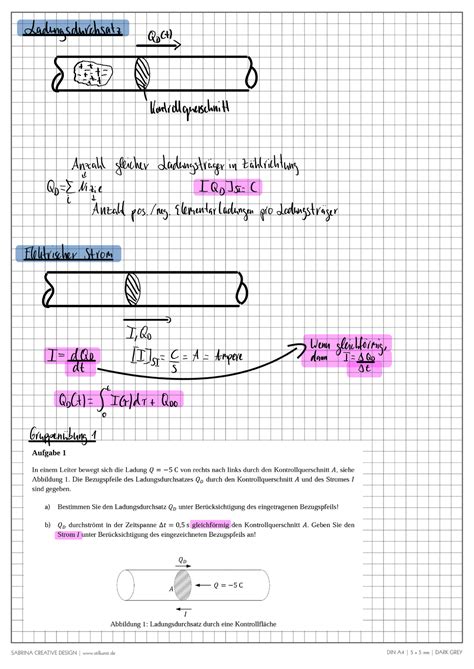 Ladungsdurchsatz
Q_D(t)
Kontrollquerschnitt
Anzahl gleicher Ladungsträger in Zählrichtung
Q_D = Σ_i N_i z_i e
[Q_D]_SI = C
Anzahl pos./neg. Elementarladungen pro Ladungsträger
Elektrischer Strom
I, Q_D
I = dQ_D/dt
[I]_SI = C/s = A = Ampere
Wenn gleichförmig,
dann I = ΔQ_D/Δt
Q_D(t) = ∫_0^t I(τ)dτ + Q_D0
Gruppenübung 1
Aufgabe 1
In einem Leiter bewegt sich die Ladung Q = −5 C von rechts nach links durch den Kontrollquerschnitt A, siehe
Abbildung 1. Die Bezugspfeile des Ladungsdurchsatzes Q_D durch den Kontrollquerschnitt A und des Stromes I
sind gegeben.
a) Bestimmen Sie den Ladungsdurchsatz Q_D unter Berücksichtigung des eingetragenen Bezugspfeils!
b) Q_D durchströmt in der Zeitspanne Δt = 0,5 s gleichförmig den Kontrollquerschnitt A. Geben Sie den
Strom I unter Berücksichtigung des eingezeichneten Bezugspfeils an!
Q_D
A
Q = −5 C
I
Abbildung 1: Ladungsdurchsatz durch eine Kontrollfläche
SABRINA CREATIVE DESIGN | www.stilkunst.de
DIN A4 | 5 x 5 mm | DARK GREY